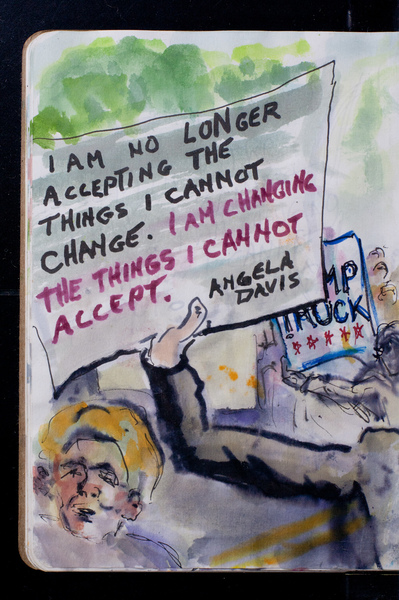 I AM NO LONGER
ACCEPTING THE
THINGS I CANNOT
CHANGE. I AM CHANGING
THE THINGS I CANNOT
ACCEPT.
ANGELA
DAVIS
MP
TRUCK